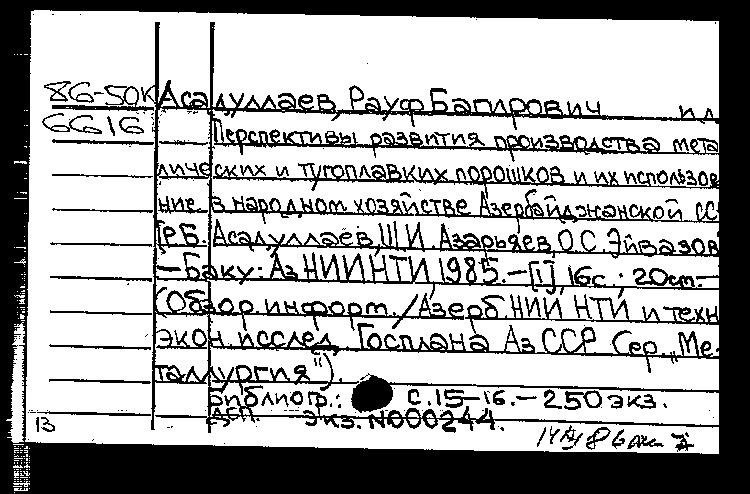 86-50К Асадуллаев, Рауф Багирович и д
6616 Перспективы развития производства мета
лических и тугоплавких порошков и их использов
ние в народном хозяйстве Азербайджанской СС
Р.Б. Асадуллаев, Ш.И. Азарьяев, О.С. Эйвазов
— Баку: АзНИИНТИ, 1985. — [1], 16с.; 20см. —
(Обзор. информ. / Азерб НИИ НТИ и техн
экон. исслед. Госплана Аз ССР. Сер. „Ме-
таллургия").
Библиогр.: с. 15-16. — 250 экз.
ДСП. Экз. N000244.
13